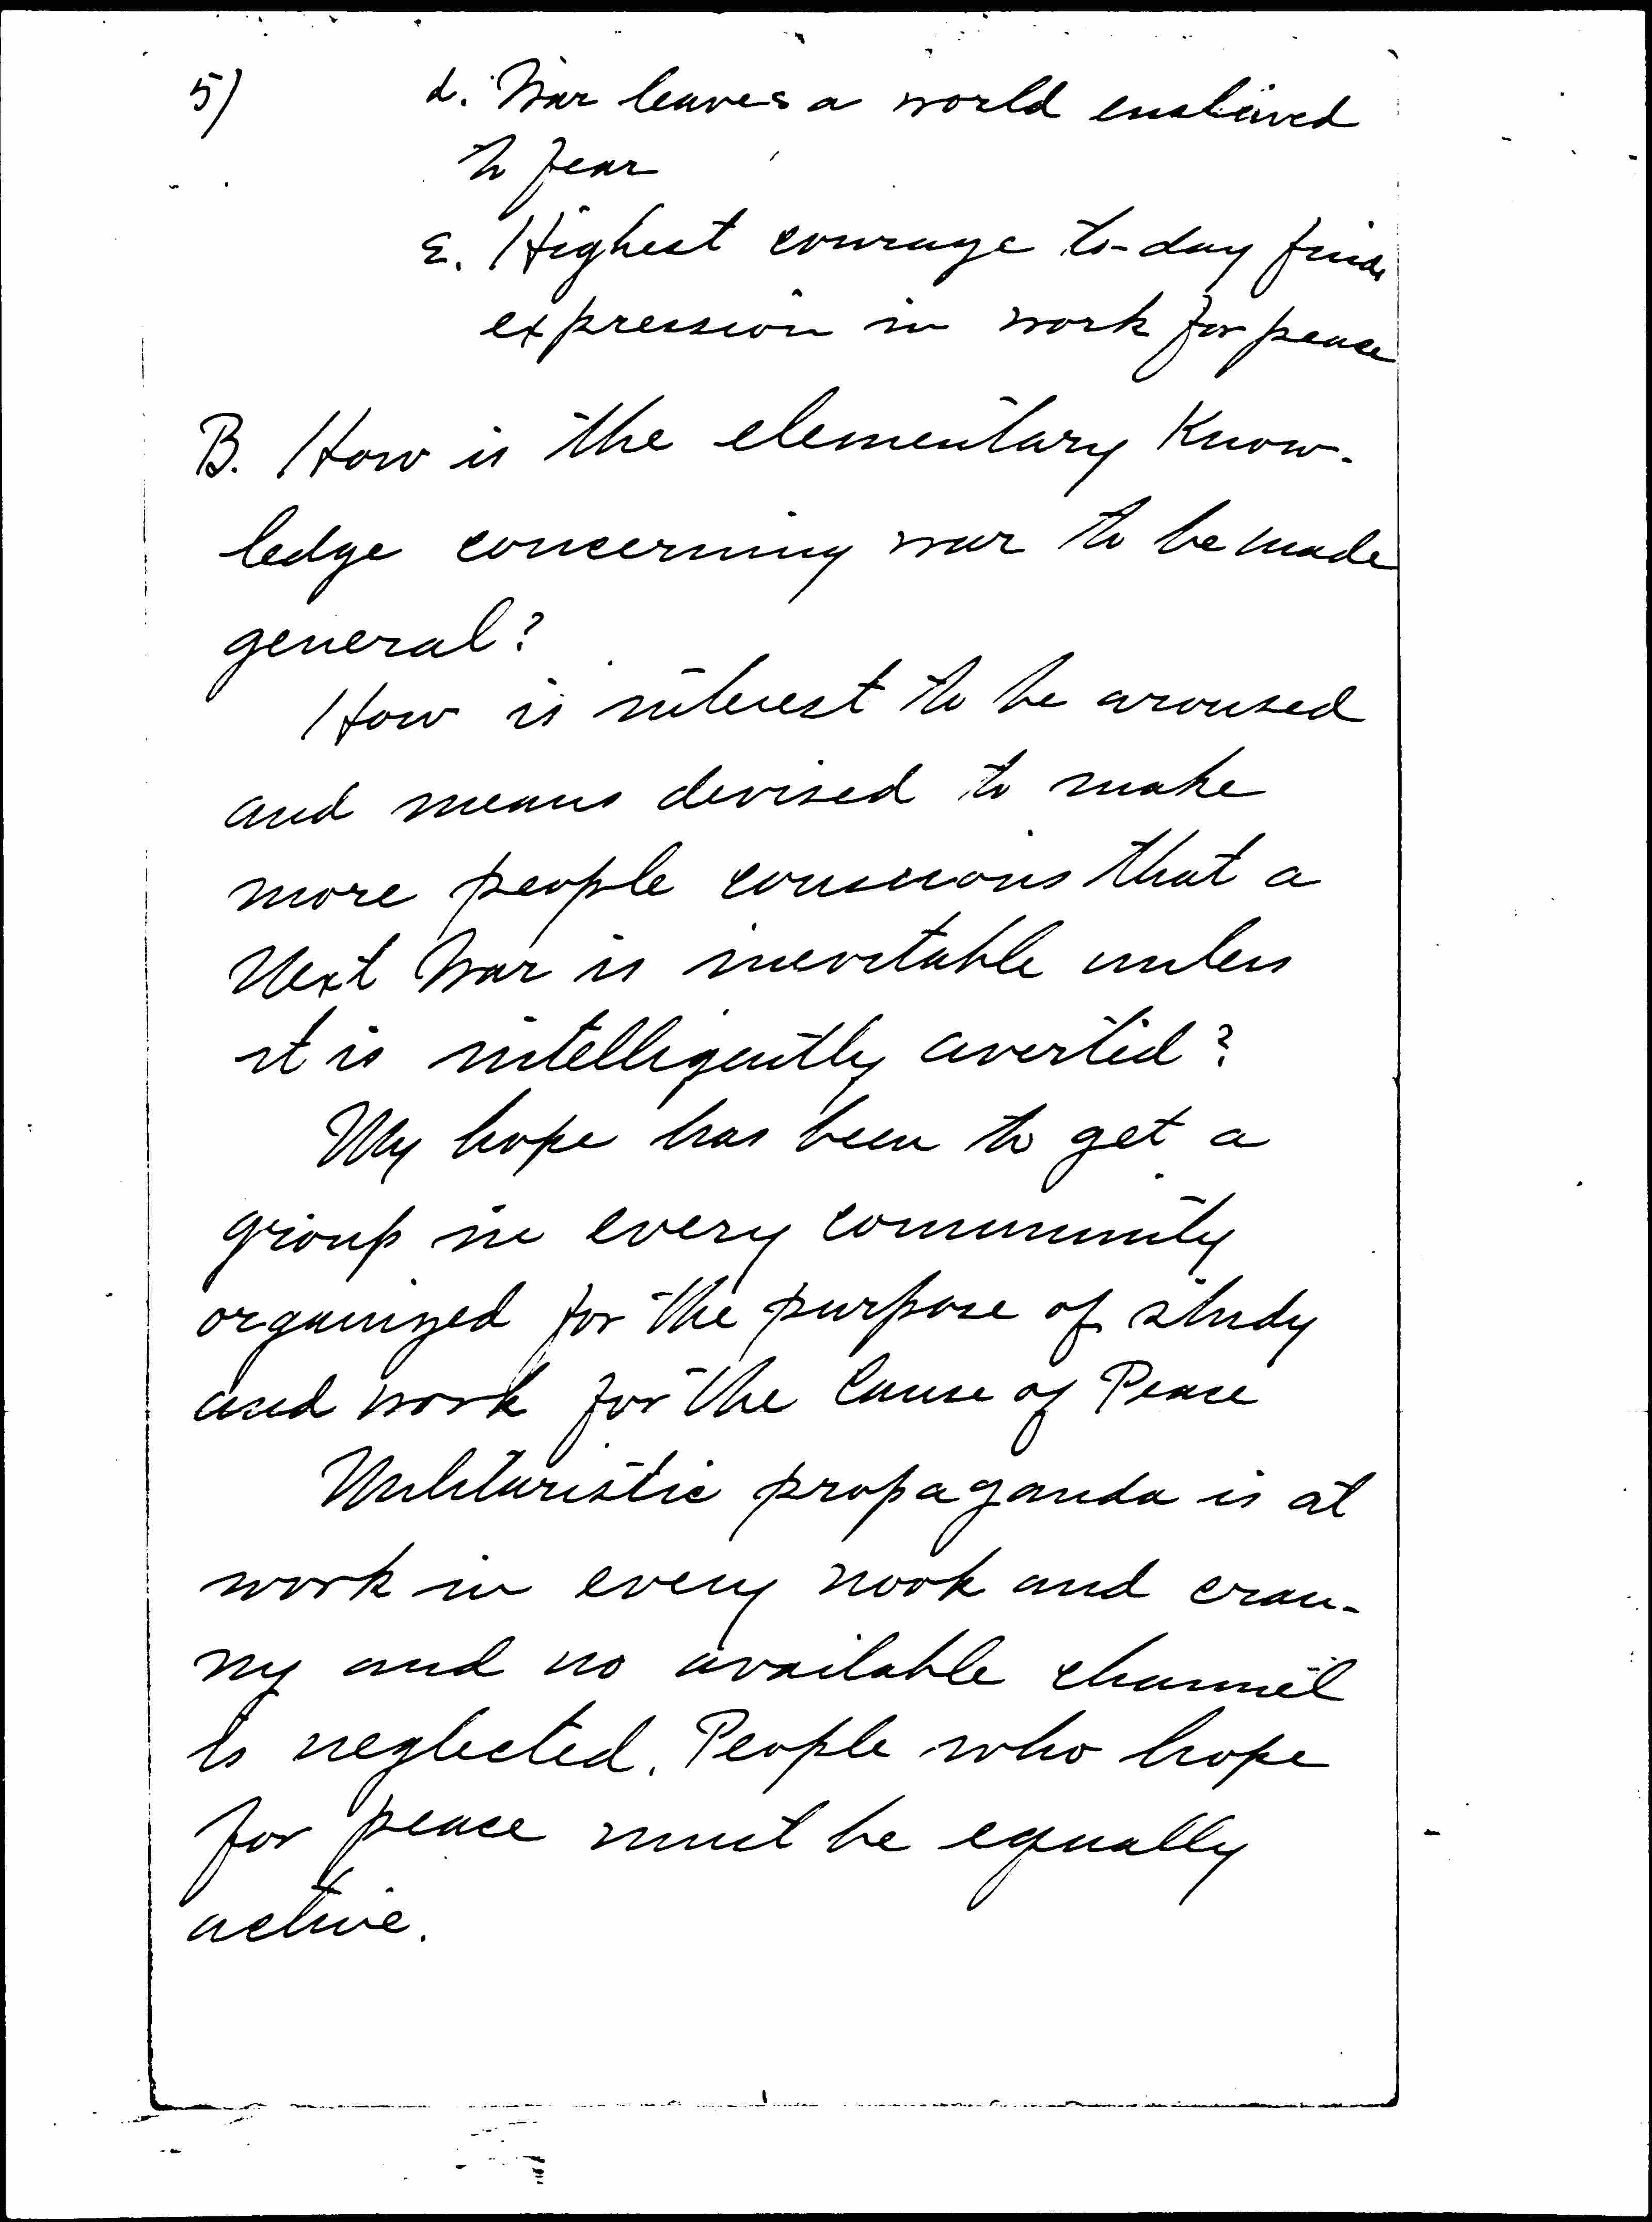 5) d. War leaves a world enslaved
to fear
e. Highest courage to-day finds
expression in work for peace
B. How is the elementary Know-
ledge concerning war to be made
general?
How is interest to be aroused
and means devised to make
more people conscious that a
Next War is inevitable unless
it is intelligently averted?
My hope has been to get a
group in every community
organized for the purpose of study
and work for the Cause of Peace
Militaristic propaganda is at
work in every nook and cran-
ny and no available channel
is neglected. People who hope
for peace must be equally
active.